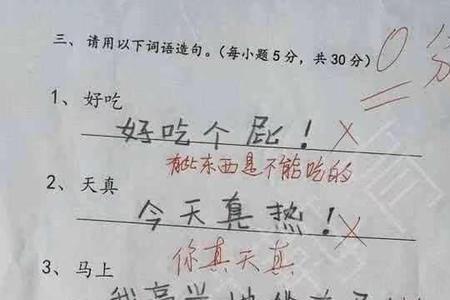 三、请用以下词语造句。(每小题5分，共30分) 0分
1、好吃
好吃个屁！
有些东西是不能吃的
2、天真
今天真热！
你真天真
3、马上